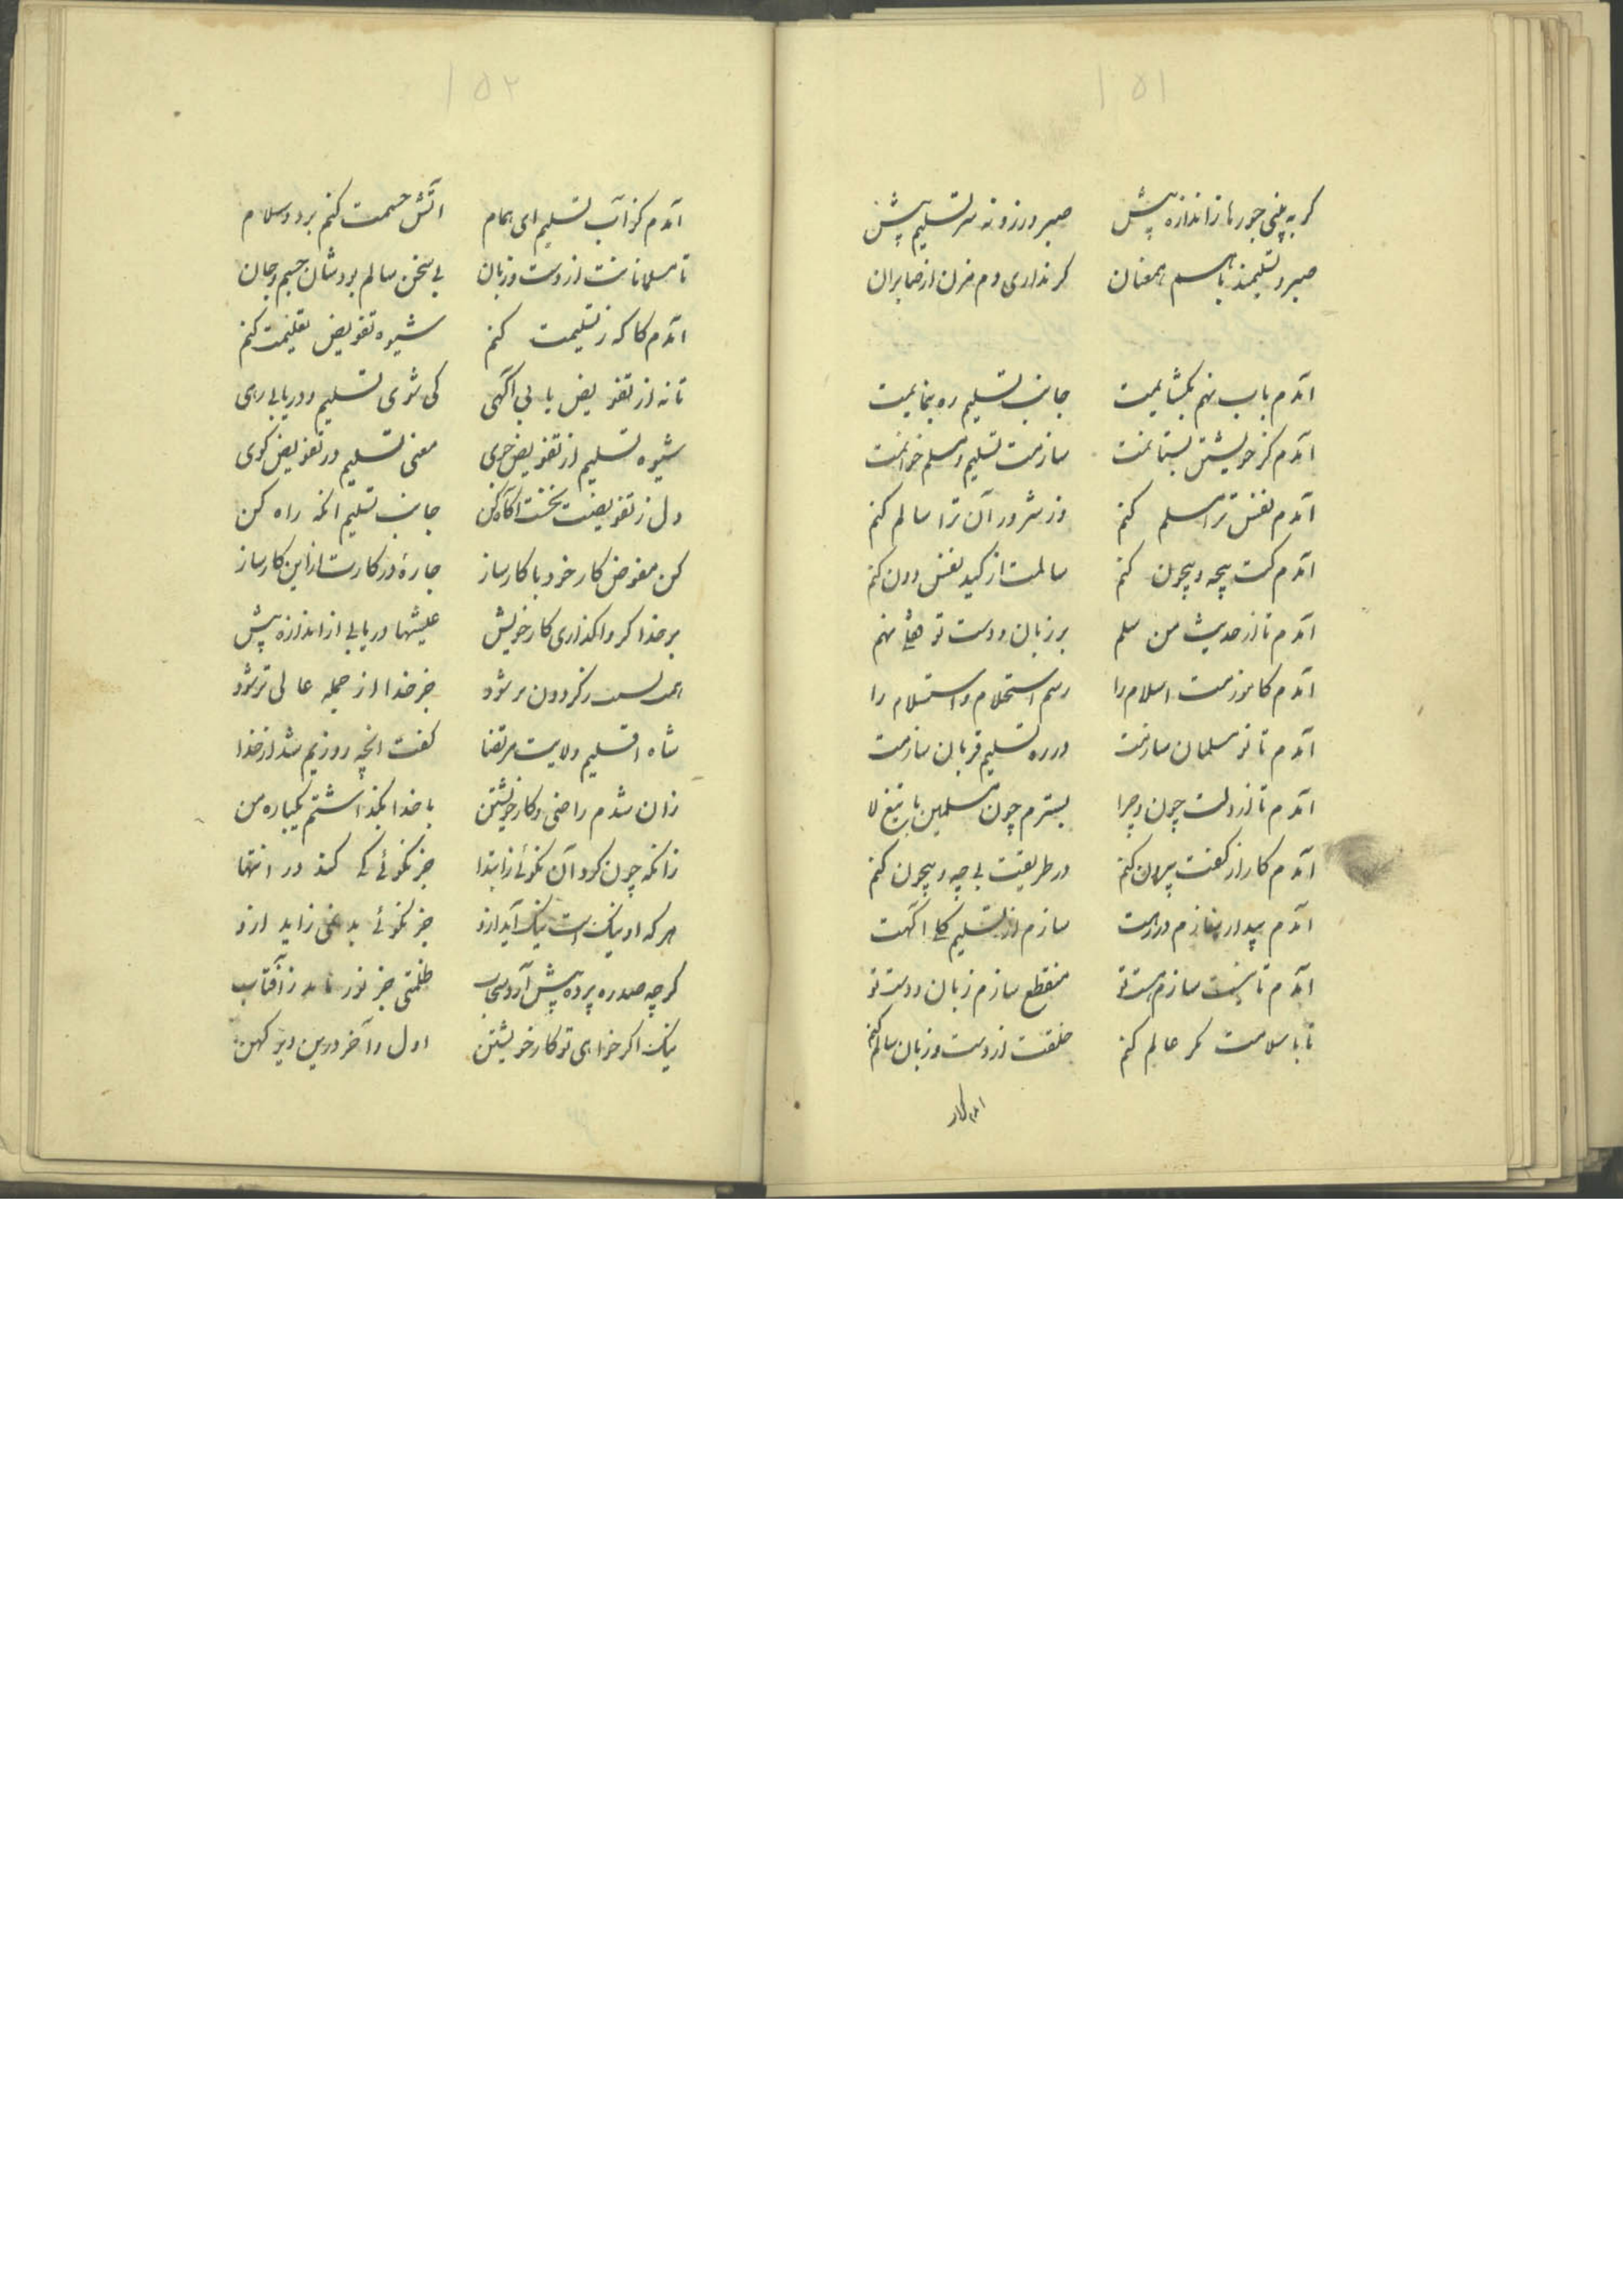 ۱۵۱
کر به بینی جورها ز اندازه بیش صبر ورز و نه سر تسلیم پیش
صبر و تسلیمند با هم همعنان کر نداری دم مزن از صابران
آمدم باب نهم بکشایمیت جانب تسلیم ره بنمایمیت
آمدم کز خویشتن بستانمت سازمت تسلیم و مسلم خوانمت
آمدم نفس ترا مسلم کنم وز شرور آن ترا سالم کنم
آمدم کت بیچه و بیچون کنم سالمت از کید نفس دون کنم
آمدم تا از حدیث من سلم بر زبان و دست تو نهم
آمدم کاموزمت اسلام را رسم استحلام و استسلام را
آمدم تا نو مسلمان سازمت در ره تسلیم قربان سازمت
آمدم تا از دلت چون و چرا بسترم چون مسلمین با تیغ لا
آمدم کار از کفت بیرون کنم در طریقت بی چه و بیچون کنم
آمدم بیدار سازم در رهت سازم از تسلیم کلی اکهت
آمدم تا نیست سازم هست تو منقطع سازم زبان و دست تو
تا با سلامت کمر عالم کنم خلقت از دست و زبان سالم کنم
آمدم کز
۱۵۲
آمدم کز آب تسلیم ای همام آتش خسمت کنم برد و سلام
تا مسلمانانت از دست و زبان بی سخن سالم بود شان جسم و جان
آمدم کاکه ز تسلیمت کنم شیوه تفویض تعلیمت کنم
تا نه از تفویض یابی آکهی کی شوی تسلیم و دریابی رهی
شیوه تسلیم از تفویض جوی معنی تسلیم در تفویض کوی
دل ز تفویضت نخست اکاه کن جانب تسلیم انکه راه کن
کن مفوض کار خود با کارساز چارهٔ در کارت از این کارساز
بر خدا کر واکذاری کار خویش عیشها دریابی از اندازه بیش
ز کردون بر شود جز خدا از جمله عالی تر شود
شاه اقلیم ولایت مرتضا کفت انچه روزیم شد از خدا
زان شدم راضی و کار خویشتن با خدا بکذاشتم یکباره من
زانکه چون کرد آن نکوئی ز ابتدا جز نکوئی کی کند در انتها
هر که او نیک است نیک آید ازو جز نکوئی بد نمی زاید ازو
کرچه صد ره پرده پیش آرد سحاب ظلمتی جز نور ناید ز آفتاب
نیک اکر خواهی تو کار خویشتن اول و آخر درین دیر کهن